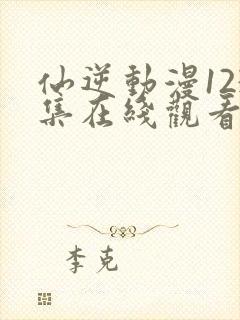 仙逆動漫12
集在綫觀看
李克